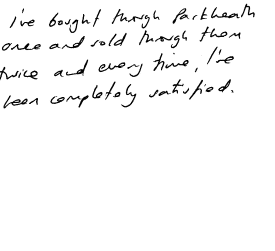 I've bought through Parkheath
once and sold through them
twice and every time, I've
been completely satisfied.